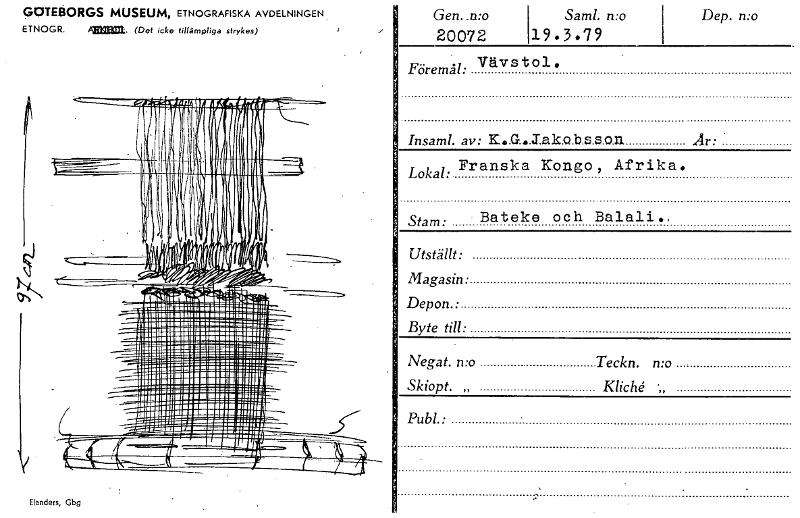 GÖTEBORGS MUSEUM, ETNOGRAFISKA AVDELNINGEN
ETNOGR. (Det icke tillämpliga strykes)
97 cm
Elanders, Gbg
Gen. n:o Saml. n:o Dep. n:o
20072 19.3.79
Föremål: Vävstol.
Insaml. av: K.G.Jakobsson År:
Lokal: Franska Kongo, Afrika.
Stam: Bateke och Balali.
Utställt:
Magasin:
Depon.:
Byte till:
Negat. n:o Teckn. n:o
Skiopt. „ Kliché „
Publ.: